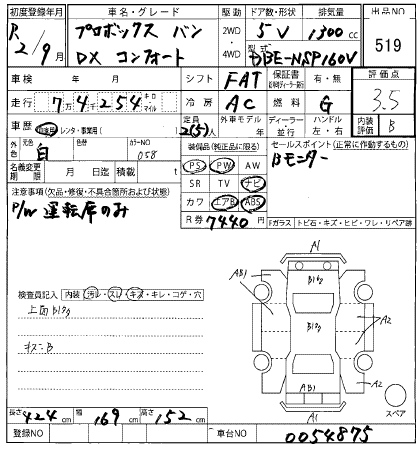 初度登録年月 車名・グレード 駆動 ドア数・形状 排気量 出品NO
R 2/9月 プロボックス バン 2WD 5V 1300cc 519
DX コンフォート 4WD 型式 DBE-NSP160V
車検 年 月 シフト FAT 保証書 有・無 評価点
走行 7万4千254 キロ マイル 冷房 AC 燃料 G 3.5
車歴 自家用 レンタ・事業用( ) 定員 2(5)人 外車モデル 年 ディーラー 並行 ハンドル 左・右 内装評価 B
外色 元色 自 カラーNO 058 装備品(純正品に限る) セールスポイント(正常に作動するもの)
名義変更期限 月 日迄 積載 t PS PW AW Bモニター
注意事項(欠品・修復・不具合箇所および状態) SR TV ナビ
P/W 運転席のみ カワ エアB ABS
R券 7440 円 Fガラス トビ石・キズ・ヒビ・ワレ・リペア跡
検査員記入 内装 汚レ・スレ・キズ・キレ・コゲ・穴
A1
AB1
A2
A2
AB1
A1
スペア
長さ 424cm 幅 169cm 高さ 152cm
登録NO 車台NO 0054875